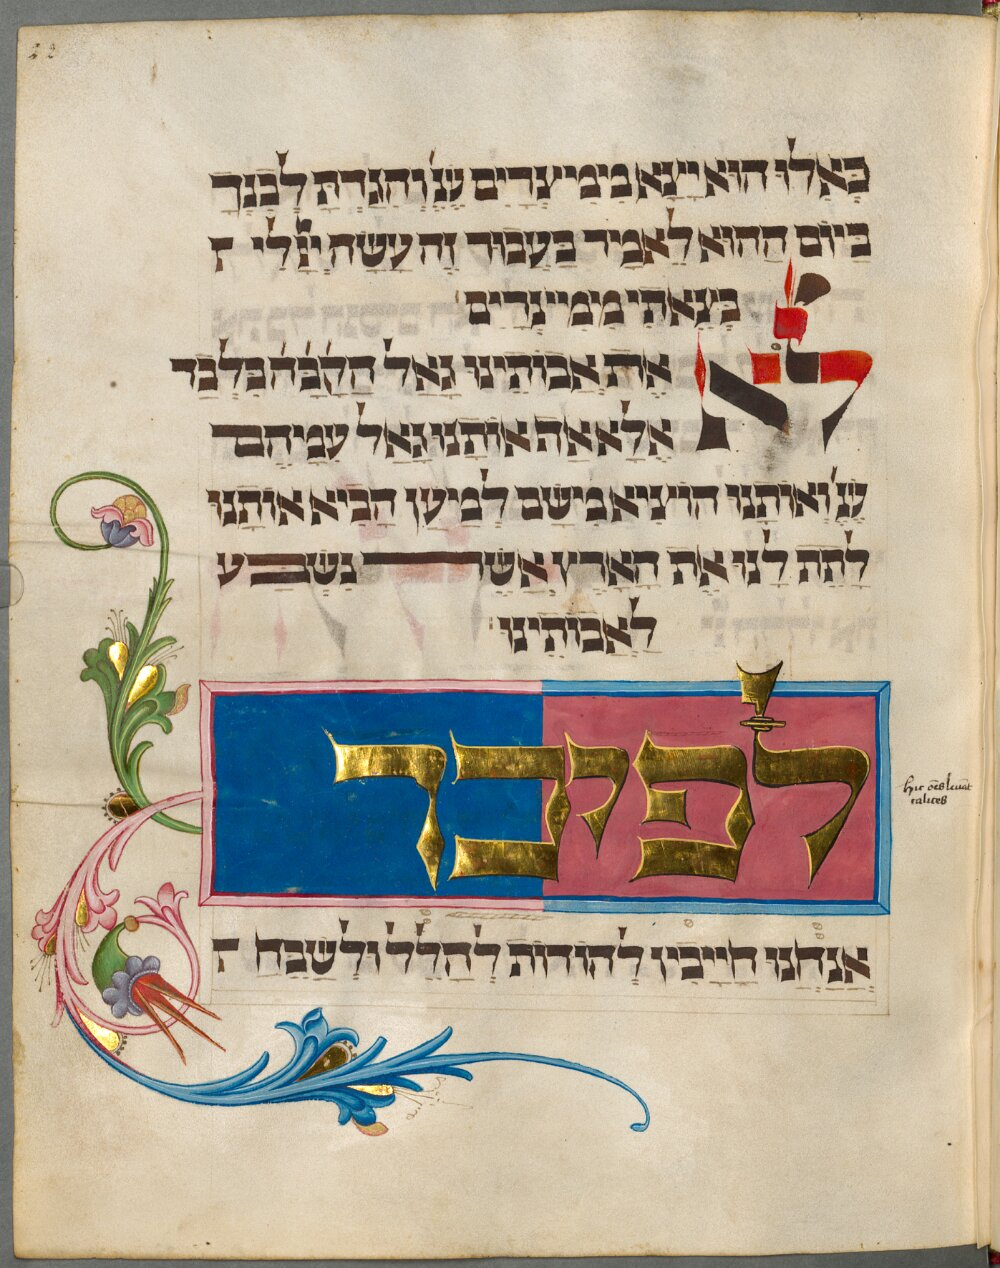 22
כאלו הוא יצא ממיצרים שנ' והגדת לבנך
ביום ההוא לאמיר בעבור זה עשה ייי לי
בצאתי ממיצרים׃
לא את אבותינו גאל הקב'ה' בלבד
אלא אף אותנו גאל עמהם
שנ' ואותנו הוציא משם למיען הביא אותנו
לתת לנו את הארץ אשר נשבע
לאבותינו׃
לפיכך
hic oēs leuāt
calices
אנחנו חייבין להודות להלל ולשבח